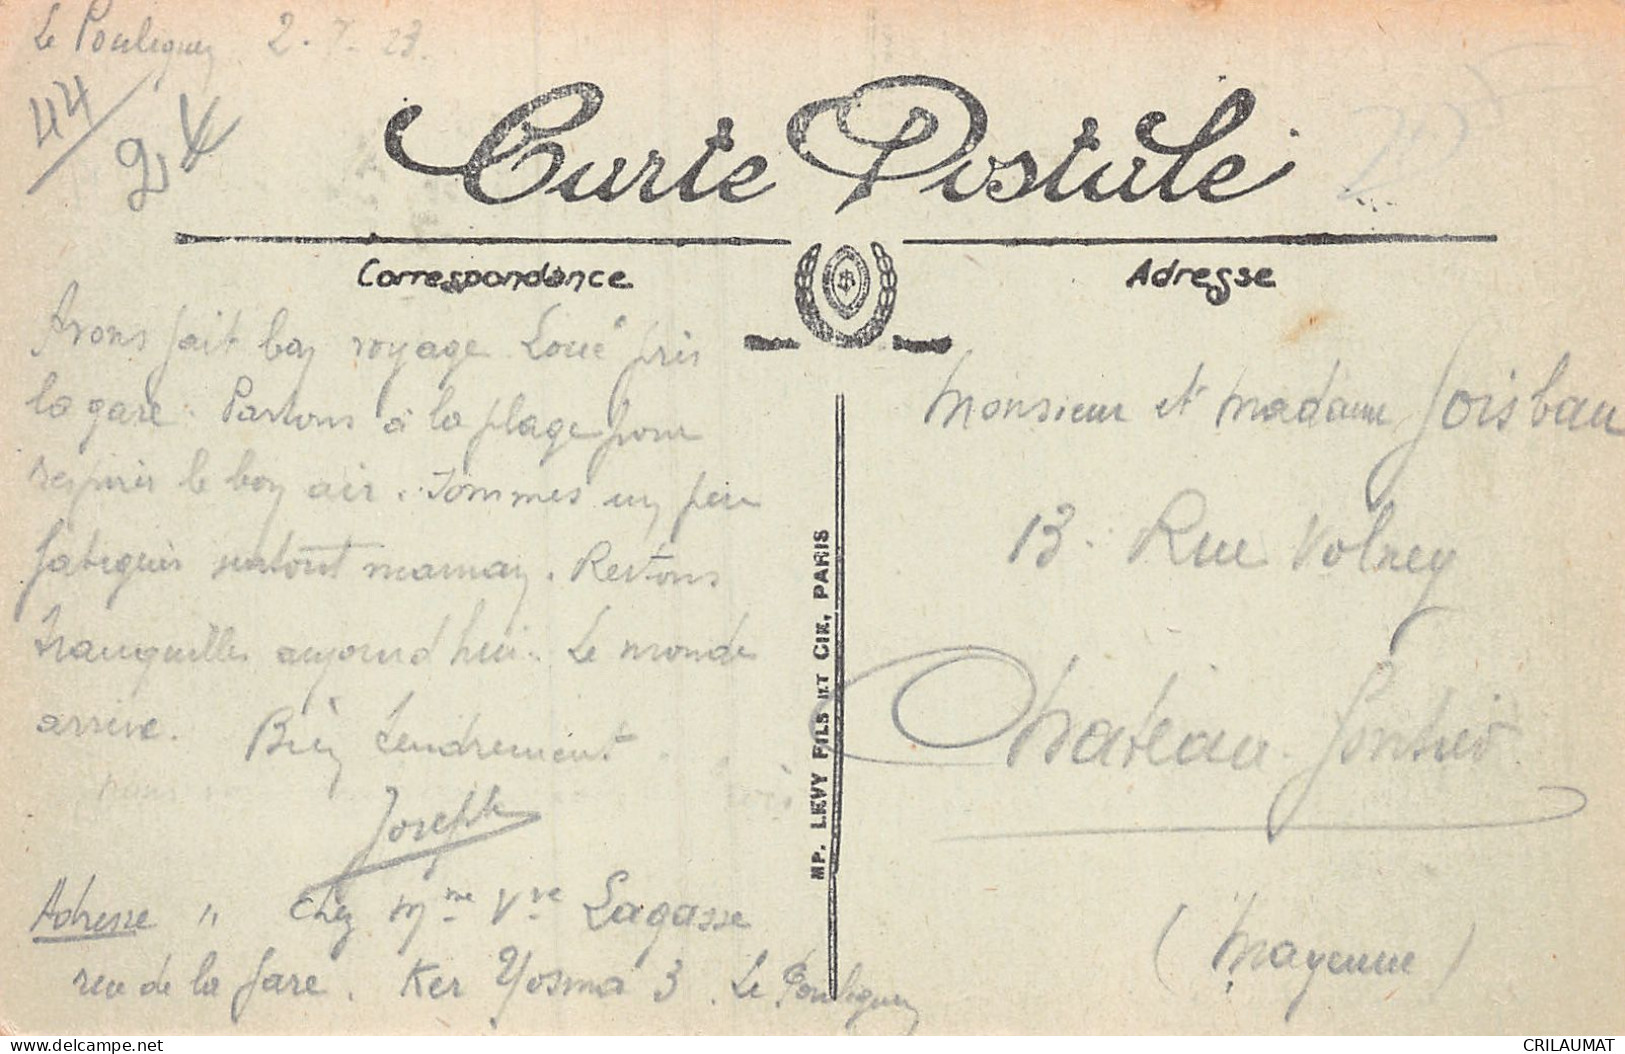 Le Pouliguen 2-7-23.
44/
2,
Carte Postale
Correspondance
Adresse
Avons fait bon voyage. Loué près
la gare. Partons à la plage pour
respirer le bon air. Sommes un peu
fatigués surtout maman. Restons
tranquilles aujourd'hui. Le monde
arrive. Bien tendrement.
Joseph
Adresse " Chez Mme Vve Lagasse
rue de la Gare. Ker Yosma 3. Le Pouliguen
MP. LEVY FILS ET CIE, PARIS
Monsieur et Madame
13. Rue Volney
Chateau-Gontier.
(Mayenne)
CRILAUMAT
delcampe.net